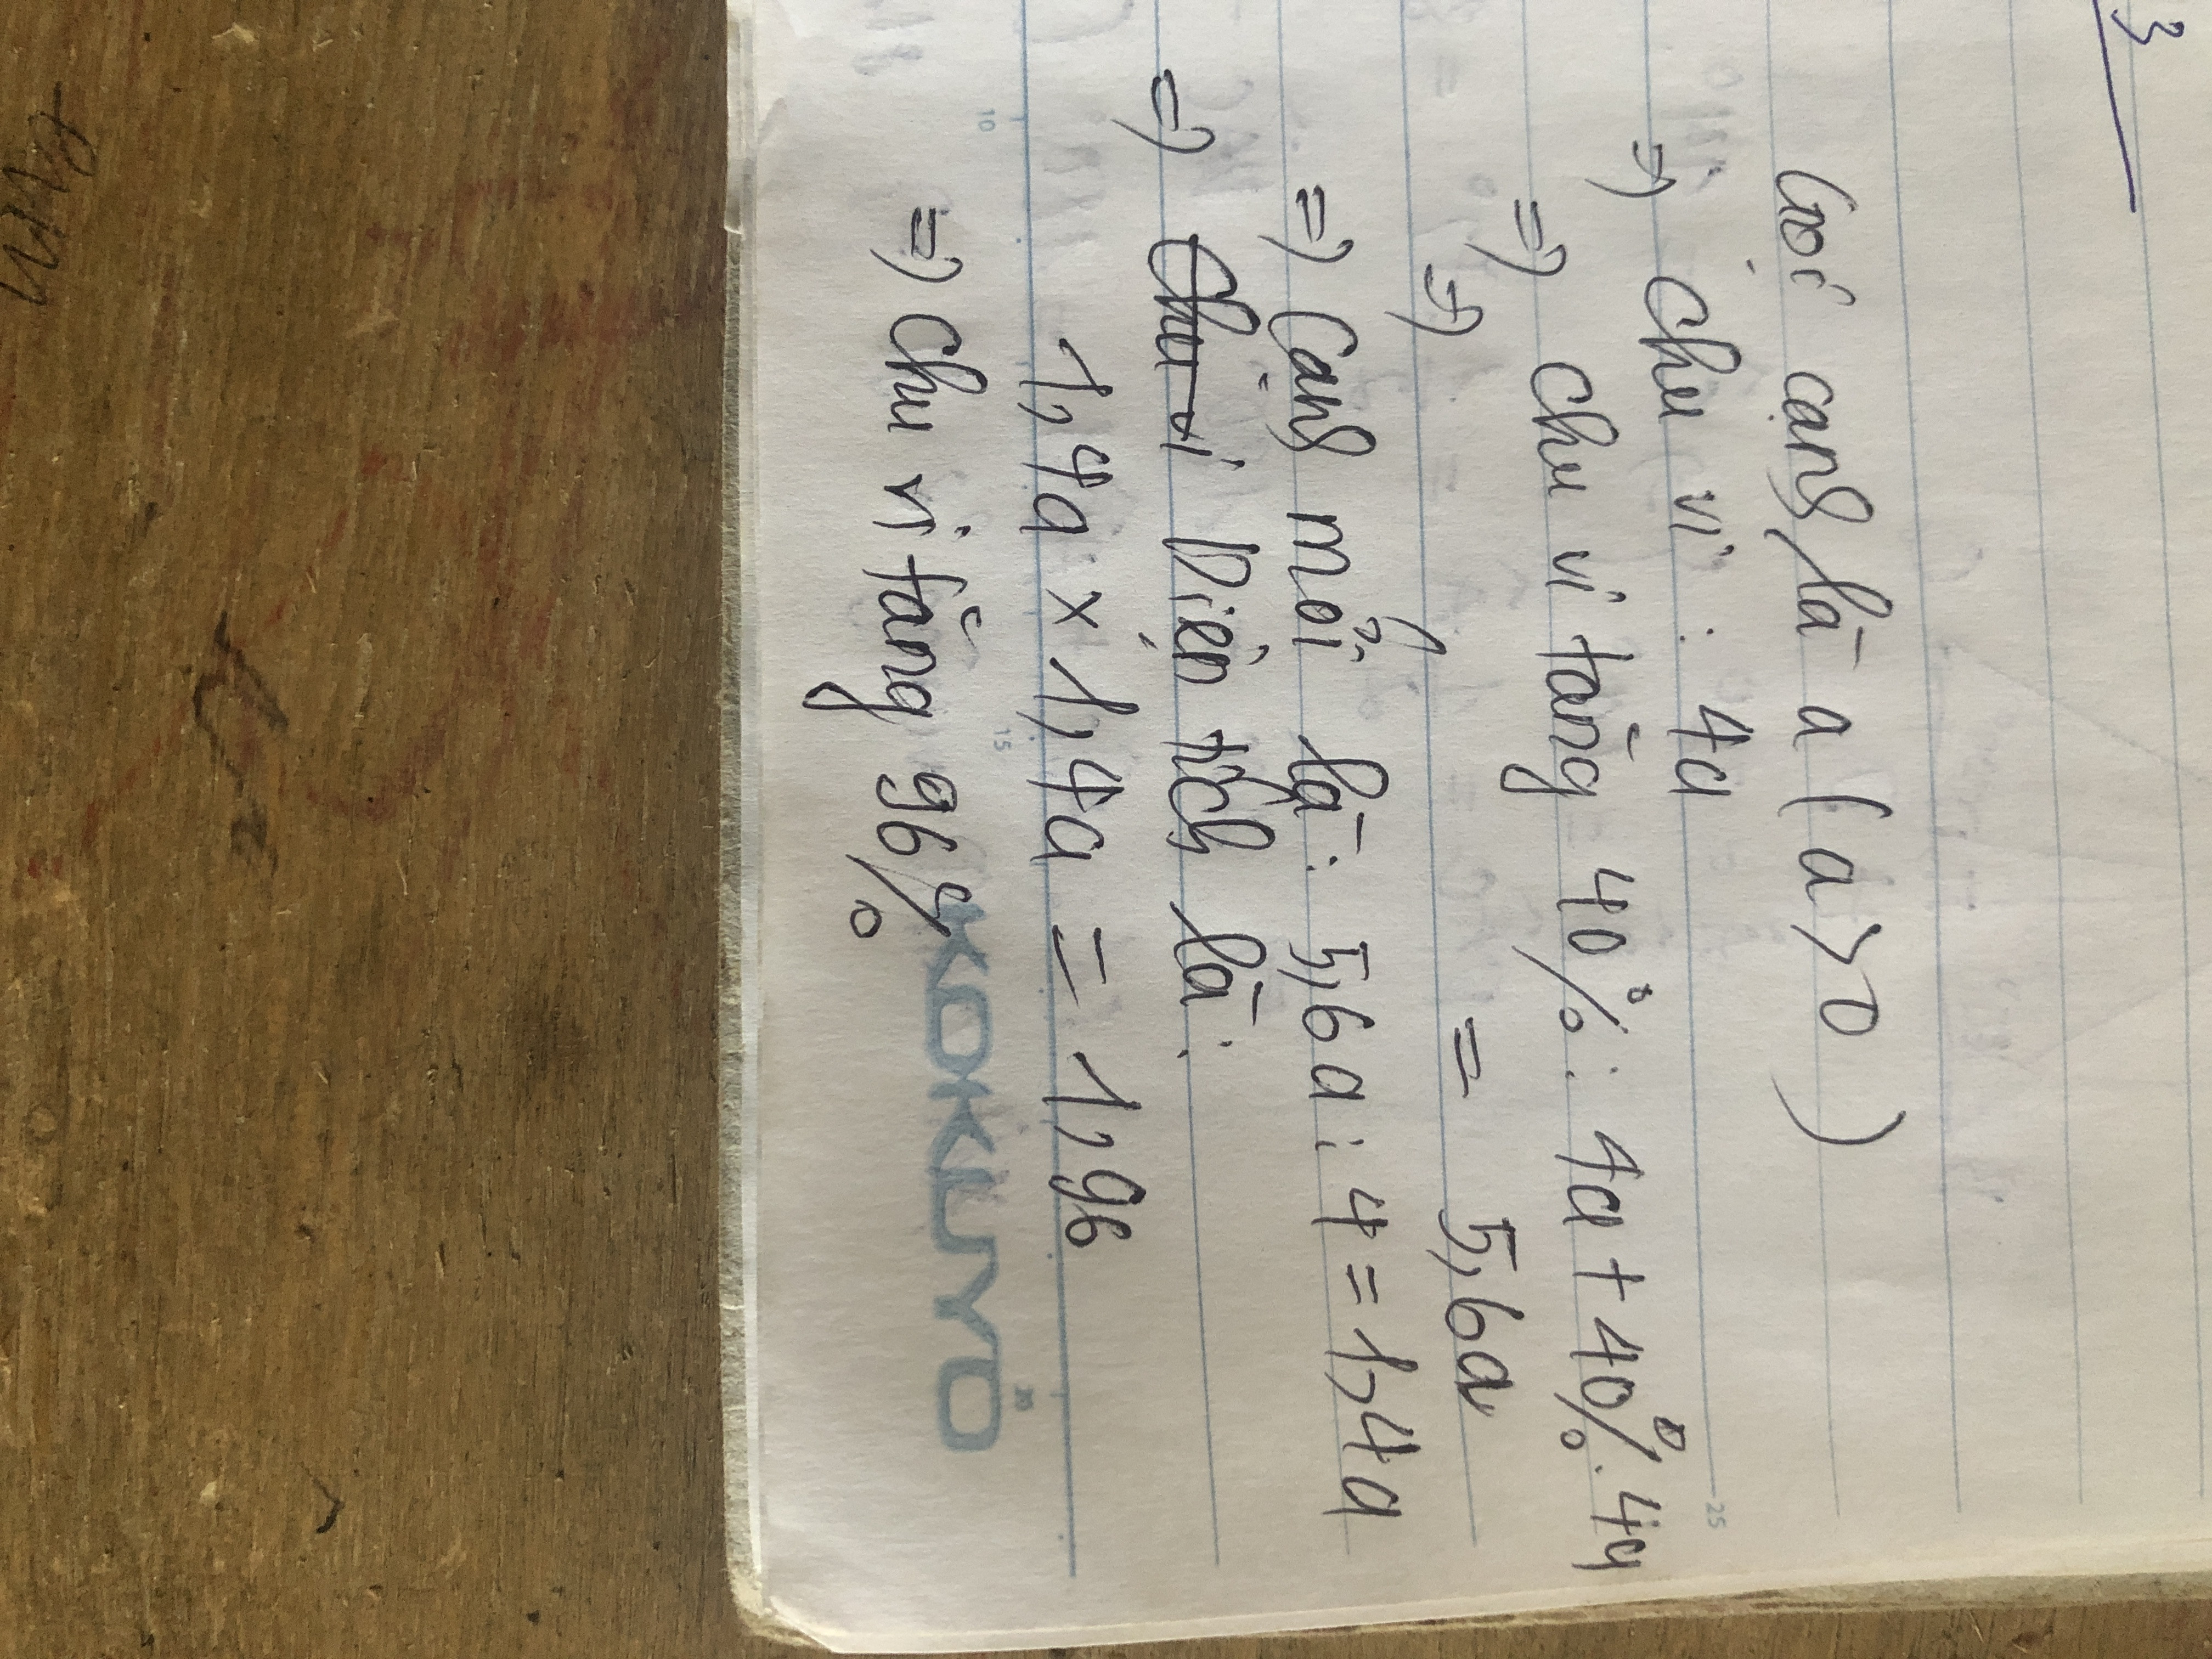 3
Gọi cạnh là a (a>0)
=> Chu vi : 4a
=> Chu vi tăng 40% : 4a + 40%.4a
=> = 5,6a
=> Cạnh mới là : 5,6a : 4 = 1,4a
=> Chu vi Diện tích là :
1,4a x 1,4a = 1,96
=> Chu vi tăng 96%
KOKUYO
10
15
20
25